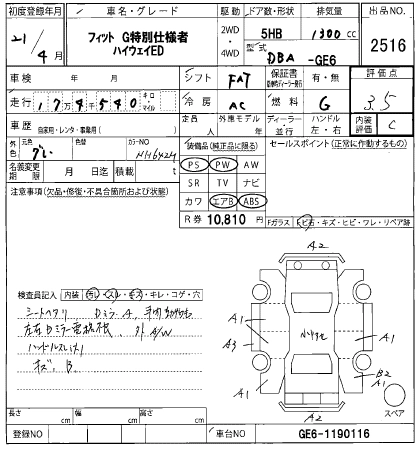 初度登録年月 車名・グレード 駆動 ドア数・形状 排気量 出品NO.
21/4月 フィット G特別仕様者 ハイウェイED 2WD 4WD 5HB 1300cc 2516
型式 DBA -GE6
車検 年 月 シフト FAT 保証書 有・無 評価点
走行 17万4千540 キロ マイル 冷房 AC 燃料 G 3.5
車歴 自家用・レンタ・事業用( ) 定員 人 外車モデル 年 ディーラー・並行 ハンドル 左・右 内装評価 C
外色 元色 色替 カラーNO NH642M 装備品(純正品に限る) セールスポイント(正常に作動するもの)
名義変更期限 月 日迄 積載 t PS PW AW
注意事項(欠品・修復・不具合箇所および状態) SR TV ナビ
カワ エアB ABS
R券 10,810 円 Fガラス ヒビ石・キズ・ヒビ・ワレ・リペア跡
A2
検査員記入 内装 汚レ・スレ・キズ・キレ・コゲ・穴
A1
シートヘタリ
A1 A3 A1
キズ、B
A1 B2 A1
A2 スペア
長さ cm 幅 cm 高さ cm
登録NO 車台NO GE6-1190116